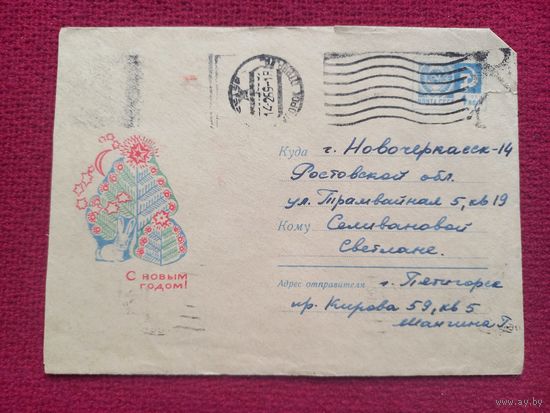 Куда г. Новочеркасск-14
Ростовской обл.
ул. Трамвайная 5, кв 19
Кому Селивановой
Светлане.
Адрес отправителя г. Пятигорск
пр. Кирова 59, кв 5
Мангина Г.
С НОВЫМ
ГОДОМ!
www.ay.by